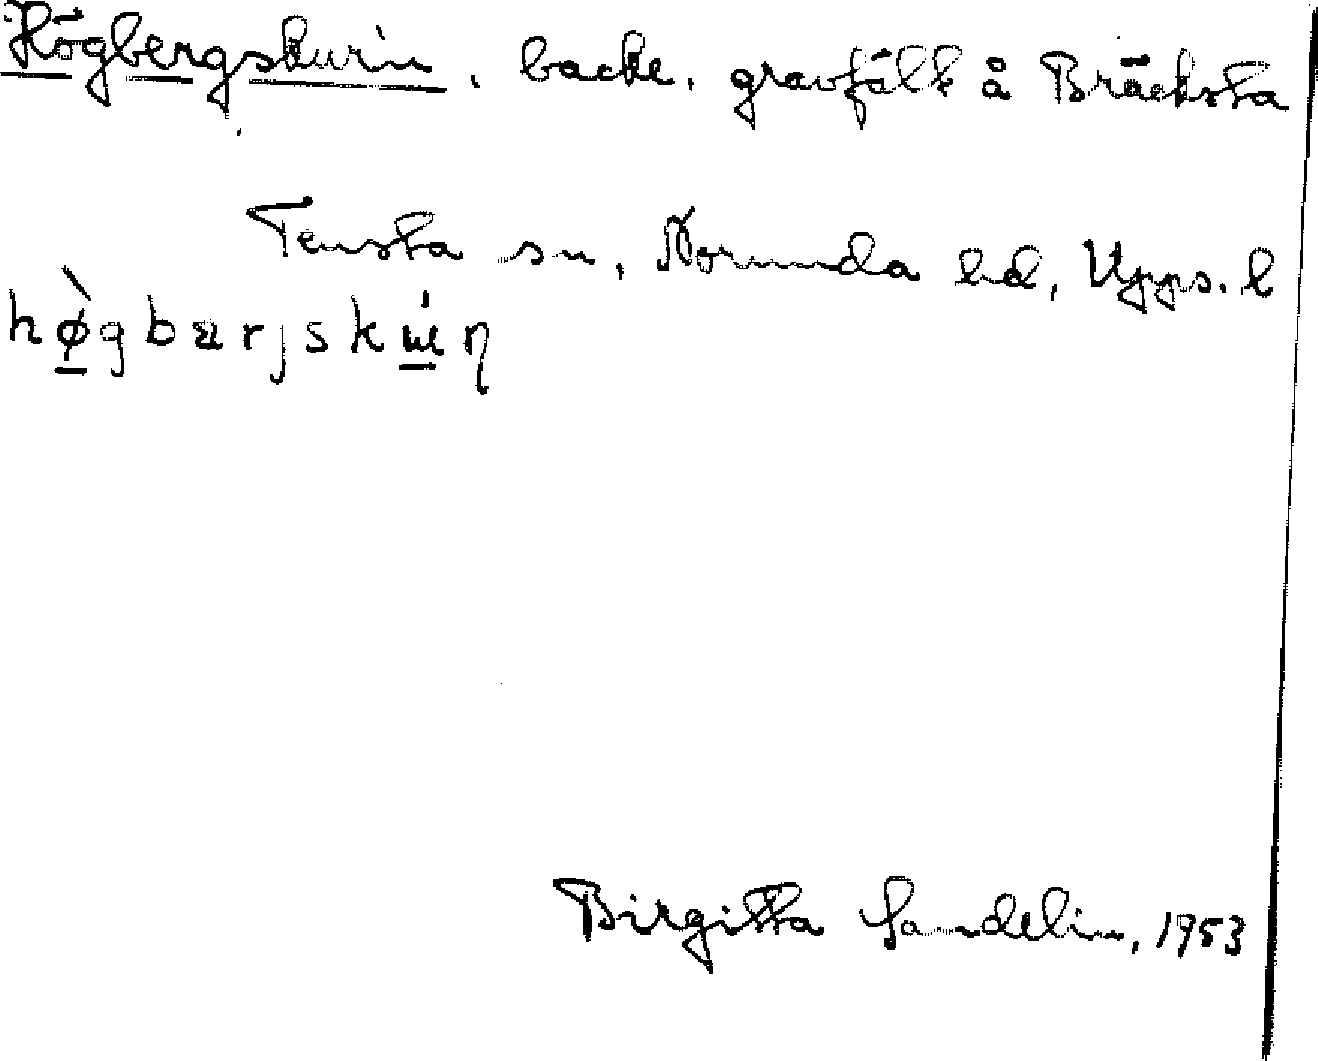 Högbergskurin, backe, gravfält å Bräcksta
Tensta sn, Norunda hd, Upps. l
Birgitta Sandelin, 1953